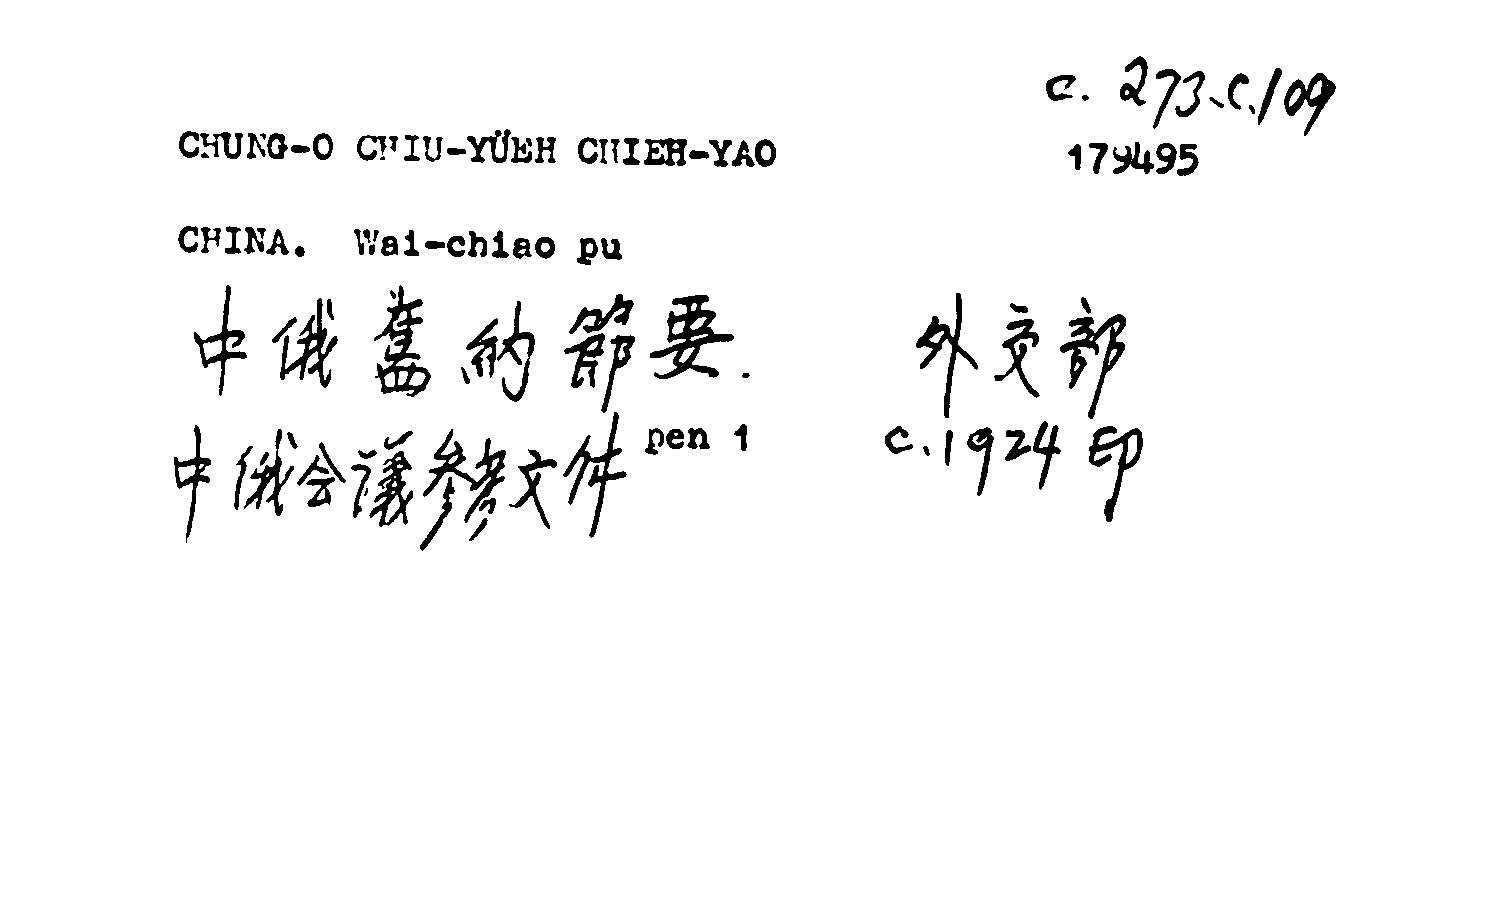 C. 273.C.109
CHUNG-O CHIU-YÜEH CHIEH-YAO
179495
CHINA. Wai-chiao pu
中俄舊約節要. 外交部
中俄会議參考文件 pen 1 C.1924 印